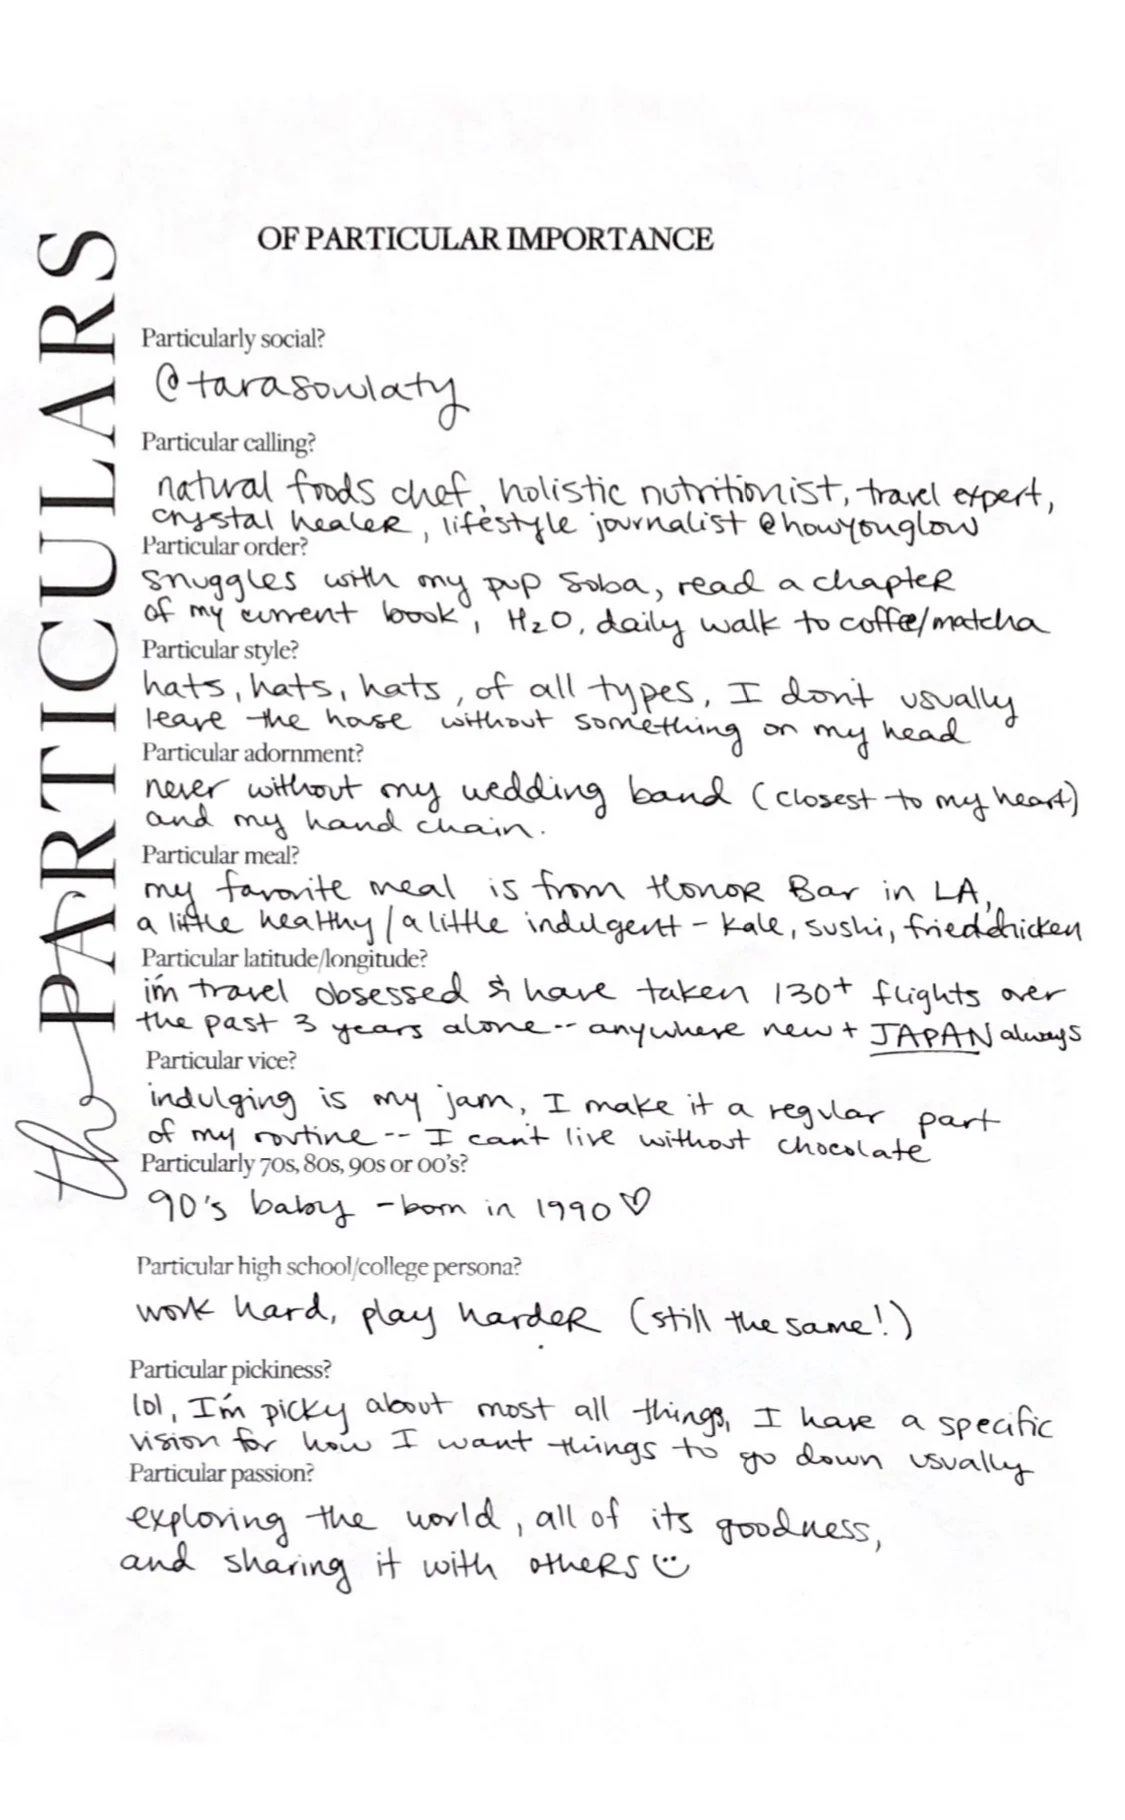 the PARTICULARS
OF PARTICULAR IMPORTANCE
Particularly social?
@tarasowlaty
Particular calling?
natural foods chef, holistic nutritionist, travel expert,
crystal healer, lifestyle journalist @howyouglow
Particular order?
snuggles with my pup Soba, read a chapter
of my current book, H2O, daily walk to coffee/matcha
Particular style?
hats, hats, hats, of all types, I don't usually
leave the house without something on my head
Particular adornment?
never without my wedding band (closest to my heart)
and my hand chain.
Particular meal?
my favorite meal is from Honor Bar in LA,
a little healthy/a little indulgent - kale, sushi, fried chicken
Particular latitude/longitude?
i'm travel obsessed & have taken 130+ flights over
the past 3 years alone -- anywhere new + JAPAN always
Particular vice?
indulging is my jam, I make it a regular part
of my routine -- I can't live without chocolate
Particularly 70s, 80s, 90s or 00's?
90's baby - born in 1990 ♡
Particular high school/college persona?
work hard, play harder (still the same!)
Particular pickiness?
lol, I'm picky about most all things, I have a specific
vision for how I want things to go down usually
Particular passion?
exploring the world, all of its goodness,
and sharing it with others